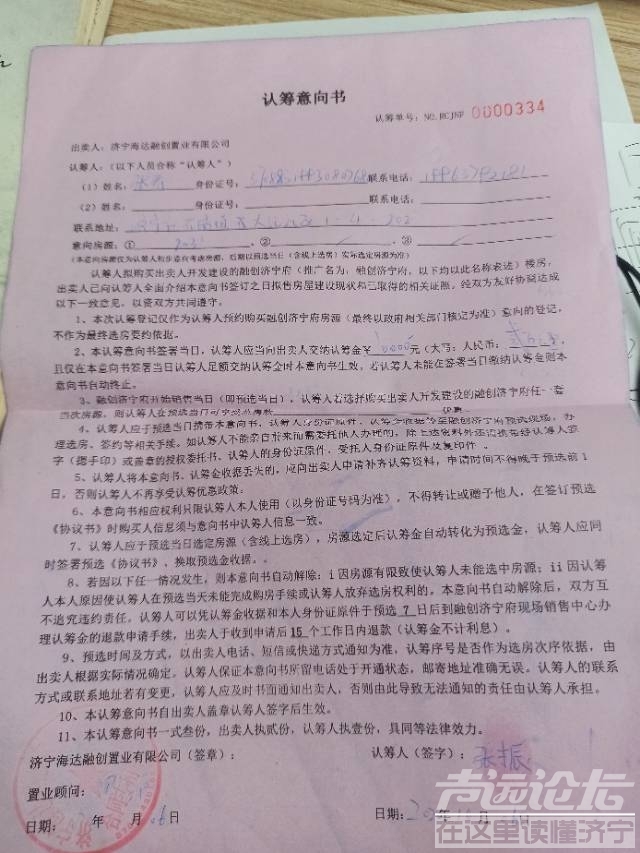 认筹意向书
认筹单号：NO.RCJNF 0000334
出卖人：济宁海达融创置业有限公司
认筹人：（以下人员合称“认筹人”）
（1）姓名： 身份证号： 联系电话：
（2）姓名： 身份证号： 联系电话：
联系地址： 1-4-202
意向房源：① ② ③
（本意向房源仅为认筹人初步意向考虑房源，后期以预选当日（含线上选房）实际选定房源为准）
认筹人拟购买出卖人开发建设的融创济宁府（推广名为：融创济宁府，以下均以此名称表述）楼房，
出卖人已向认筹人全面介绍本意向书签订之日拟售房屋建设现状和已取得的相关证照。经双方友好协商达成
以下一致意见，以资双方共同遵守。
1、本次认筹登记仅作为认筹人预约购买融创济宁府房源（最终以政府相关部门核定为准）意向的登记，
不作为最终选房要约依据。
2、本认筹意向书签署当日，认筹人应当向出卖人交纳认筹金￥ 元（大写：人民币： ），
且仅在本意向书签署当日认筹人足额交纳认筹金时本意向书生效，若认筹人未能在签署当日缴纳认筹金则本
意向书自动终止。
3、融创济宁府开始销售当日（即预选当日），认筹人若选择购买出卖人开发建设的融创济宁府任一套
当次房源，则认筹人在预选当日可享受总房款 优惠。
4、认筹人应于预选当日携带本意向书、认筹人身份证原件、认筹金收据等至融创济宁府预选现场，办
理选房、签约等相关手续。如认筹人不能亲自前来而需委托他人办理的，除上述资料外还需携带经认筹人签
字（摁手印）或盖章的授权委托书、认筹人的身份证原件、受托人身份证原件及复印件。
5、认筹人将本意向书、认筹金收据丢失的，应向出卖人申请补齐认筹资料，申请时间不得晚于预选前1
日，否则认筹人不再享受认筹优惠政策；
6、本意向书相应权利只限认筹人本人使用（以身份证号码为准），不得转让或赠予他人，在签订预选
《协议书》时购买人信息须与意向书中认筹人信息一致。
7、认筹人应于预选当日选定房源（含线上选房），房源选定后认筹金自动转化为预选金，认筹人应同
时签署预选《协议书》、换取预选金收据。
8、若因以下任一情况发生，则本意向书自动解除：i因房源有限致使认筹人未能选中房源；ii因认筹
人本人原因使认筹人在预选当天未能完成购房手续或认筹人放弃选房权利的。本意向书自动解除后，双方互
不追究违约责任，认筹人可以凭认筹金收据和本人身份证原件于预选 7 日后到融创济宁府现场销售中心办
理认筹金的退款申请手续，出卖人于收到申请后 15 个工作日内退款（认筹金不计利息）。
9、预选时间及方式，以出卖人电话、短信或快递方式通知为准，认筹序号是否作为选房次序依据，由
出卖人根据实际情况确定。认筹人保证本意向书所留电话处于开通状态，邮寄地址准确无误。认筹人的联系
方式或联系地址若有变更，认筹人应及时书面通知出卖人，否则由此导致无法通知的责任由认筹人承担。
10、本认筹意向书自出卖人盖章认筹人签字后生效。
11、本认筹意向书一式叁份，出卖人执贰份，认筹人执壹份，具同等法律效力。
济宁海达融创置业有限公司（签章）： 认筹人（签字）：张振
置业顾问：
日期： 年 月 日 日期： 年 月 日
尚运论坛
在这里读懂济宁